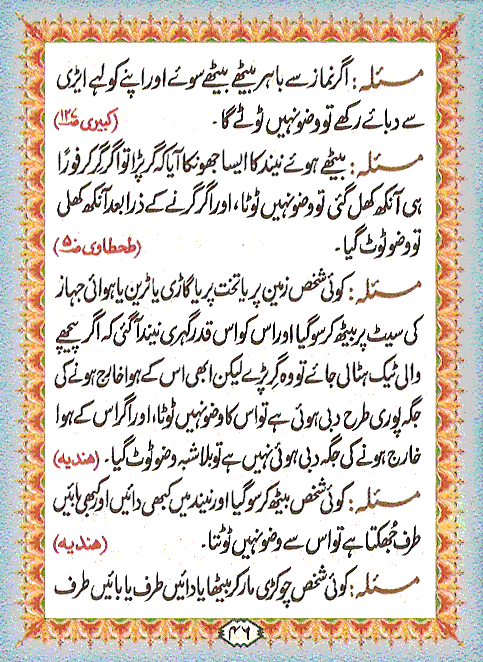 مسئلہ: اگر نماز سے باہر بیٹھے بیٹھے سوئے اور اپنے کولہے ایڑی
سے دبائے رکھے تو وضو نہیں ٹوٹے گا۔ (کبیری صـ۱۲۷)
مسئلہ: بیٹھے ہوئے نیند کا ایسا جھونکا آیا کہ گر پڑا تو اگر گر کر فورًا
ہی آنکھ کھل گئی تو وضو نہیں ٹوٹا، اور اگر گرنے کے ذرا بعد آنکھ کھلی
تو وضو ٹوٹ گیا۔ (طحطاوی صـ۵)
مسئلہ: کوئی شخص زمین پر یا تخت پر یا گاڑی یا ٹرین یا ہوائی جہاز
کی سیٹ پر بیٹھ کر سو گیا اور اس کو اس قدر گہری نیند آ گئی کہ اگر پیچھے
والی ٹیک ہٹالی جائے تو وہ گر پڑے لیکن ابھی اس کے ہوا خارج ہونے کی
جگہ پوری طرح دبی ہوئی ہے تو اس کا وضو نہیں ٹوٹا، اور اگر اس کے ہوا
خارج ہونے کی جگہ دبی ہوئی نہیں ہے تو بلاشبہ وضو ٹوٹ گیا۔ (ھندیہ)
مسئلہ: کوئی شخص بیٹھ کر سو گیا اور نیند میں کبھی دائیں اور کبھی بائیں
طرف جُھکتا ہے تو اس سے وضو نہیں ٹوٹتا۔ (ھندیہ)
مسئلہ: کوئی شخص چوکڑی مار کر بیٹھا یا دائیں طرف یا بائیں طرف
۴۶